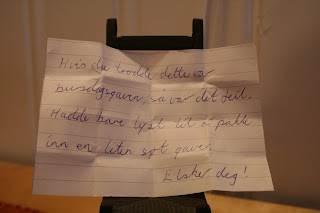 Hvis du trodde dette var
bursdagsgaven, så var det feil.
Hadde bare lyst til å pakke
inn en liten søt gave.
Elsker deg!